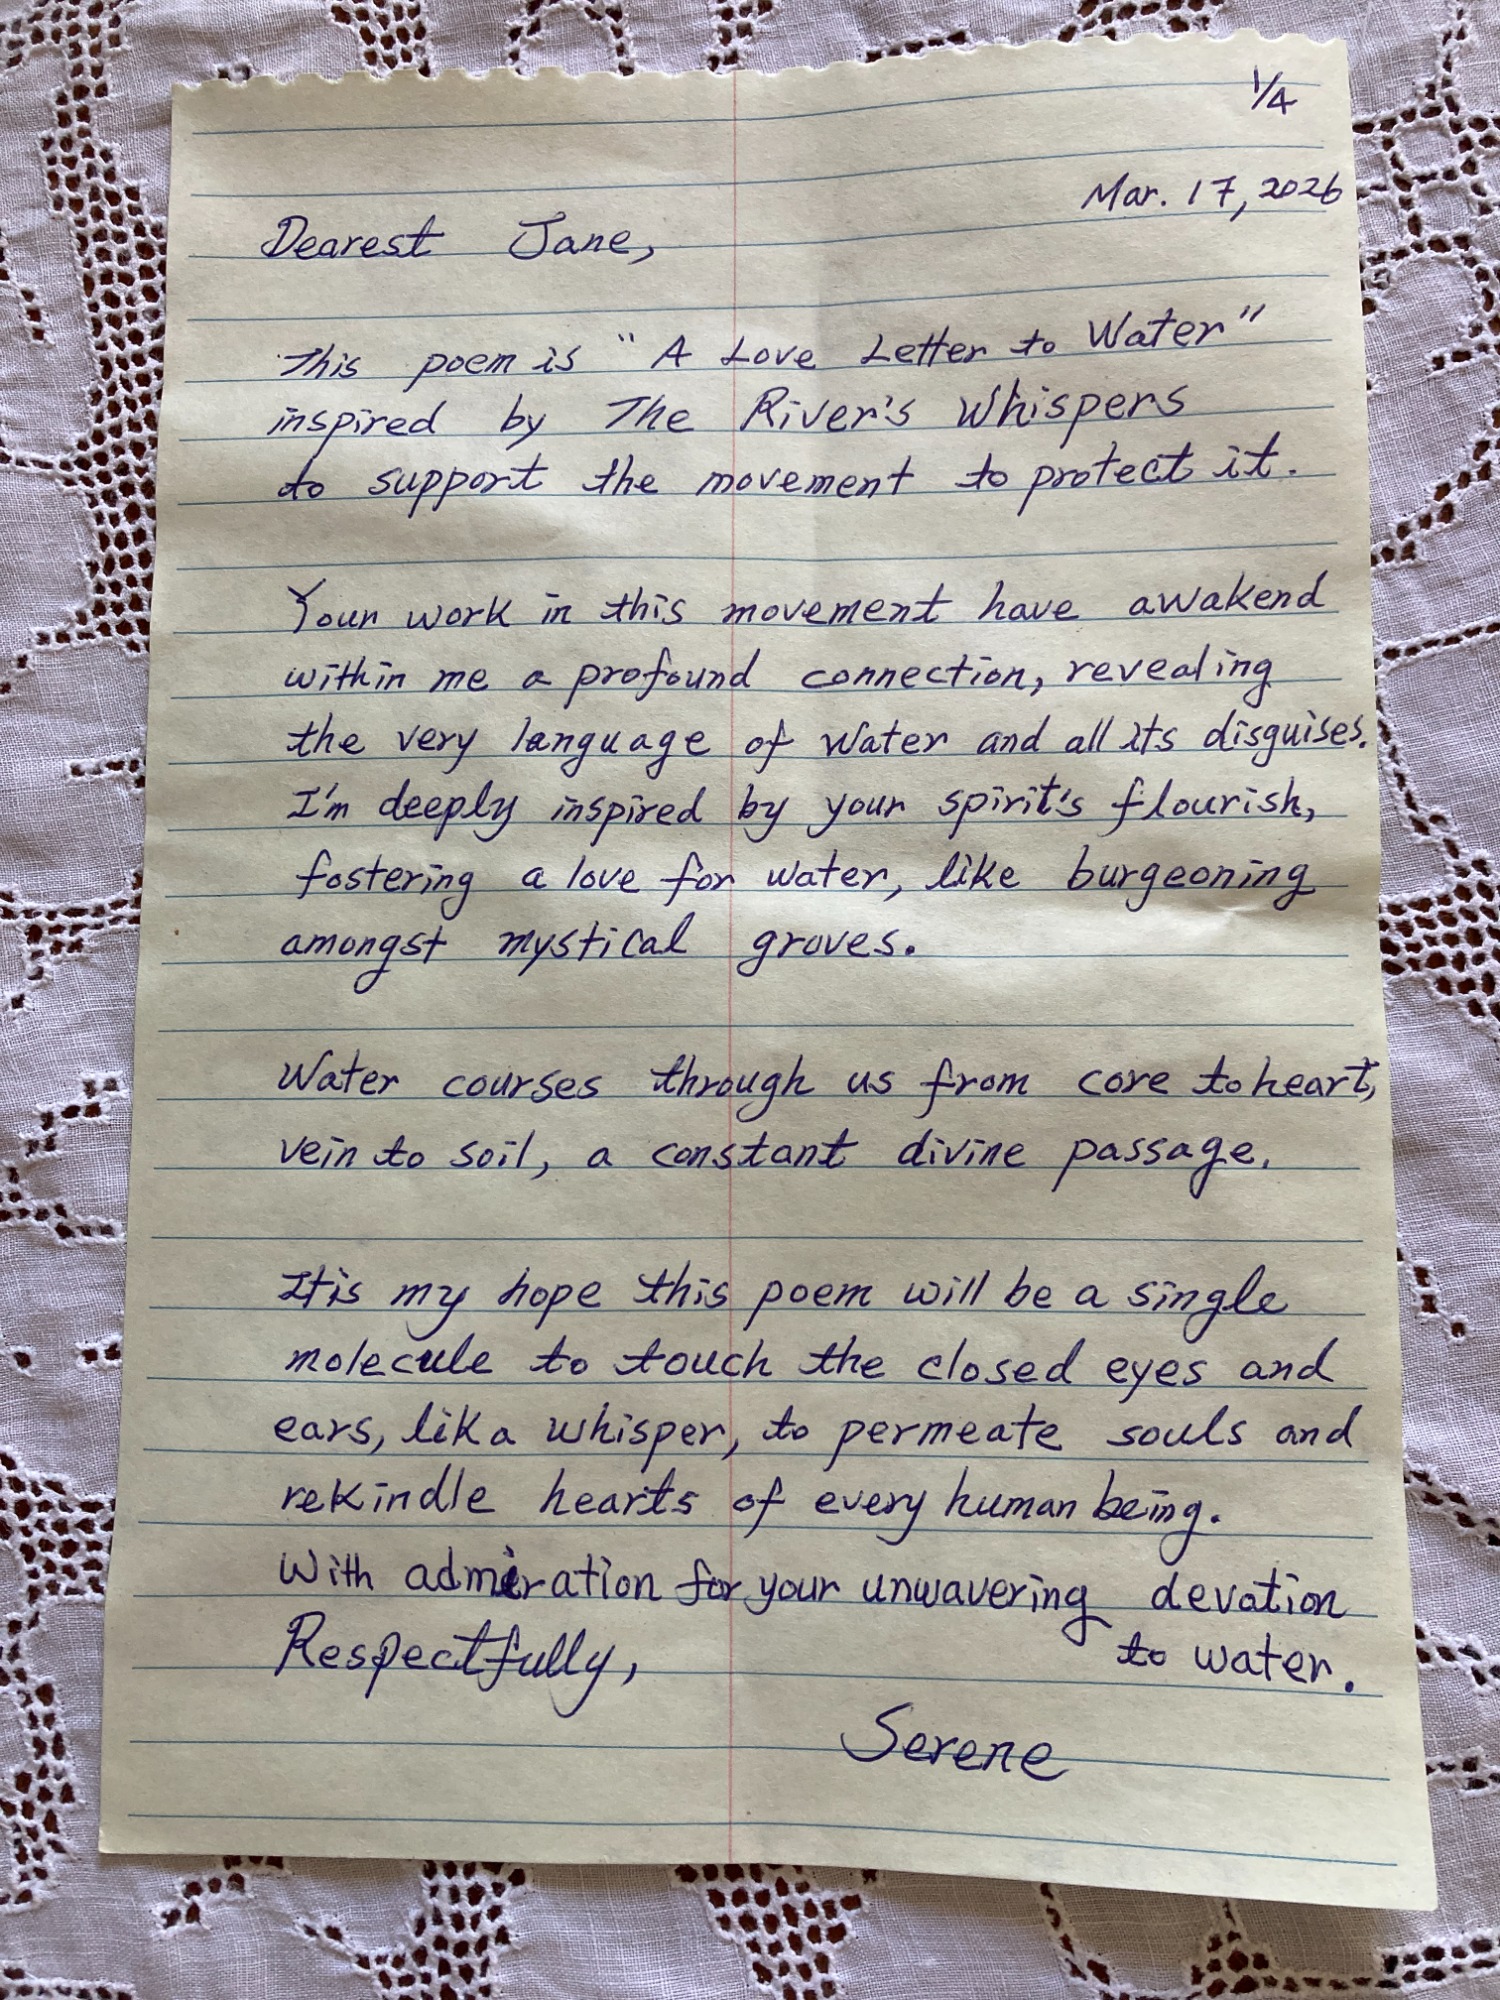 1/4
Mar. 17, 2026
Dearest Jane,
This poem is "A Love Letter to Water"
inspired by The River's Whispers
to support the movement to protect it.
Your work in this movement have awakend
within me a profound connection, revealing
the very language of water and all its disguises.
I'm deeply inspired by your spirit's flourish,
fostering a love for water, like burgeoning
amongst mystical groves.
Water courses through us from core to heart,
vein to soil, a constant divine passage.
It is my hope this poem will be a single
molecule to touch the closed eyes and
ears, lik a whisper, to permeate souls and
rekindle hearts of every human being.
With admiration for your unwavering devation
to water.
Respectfully,
Serene